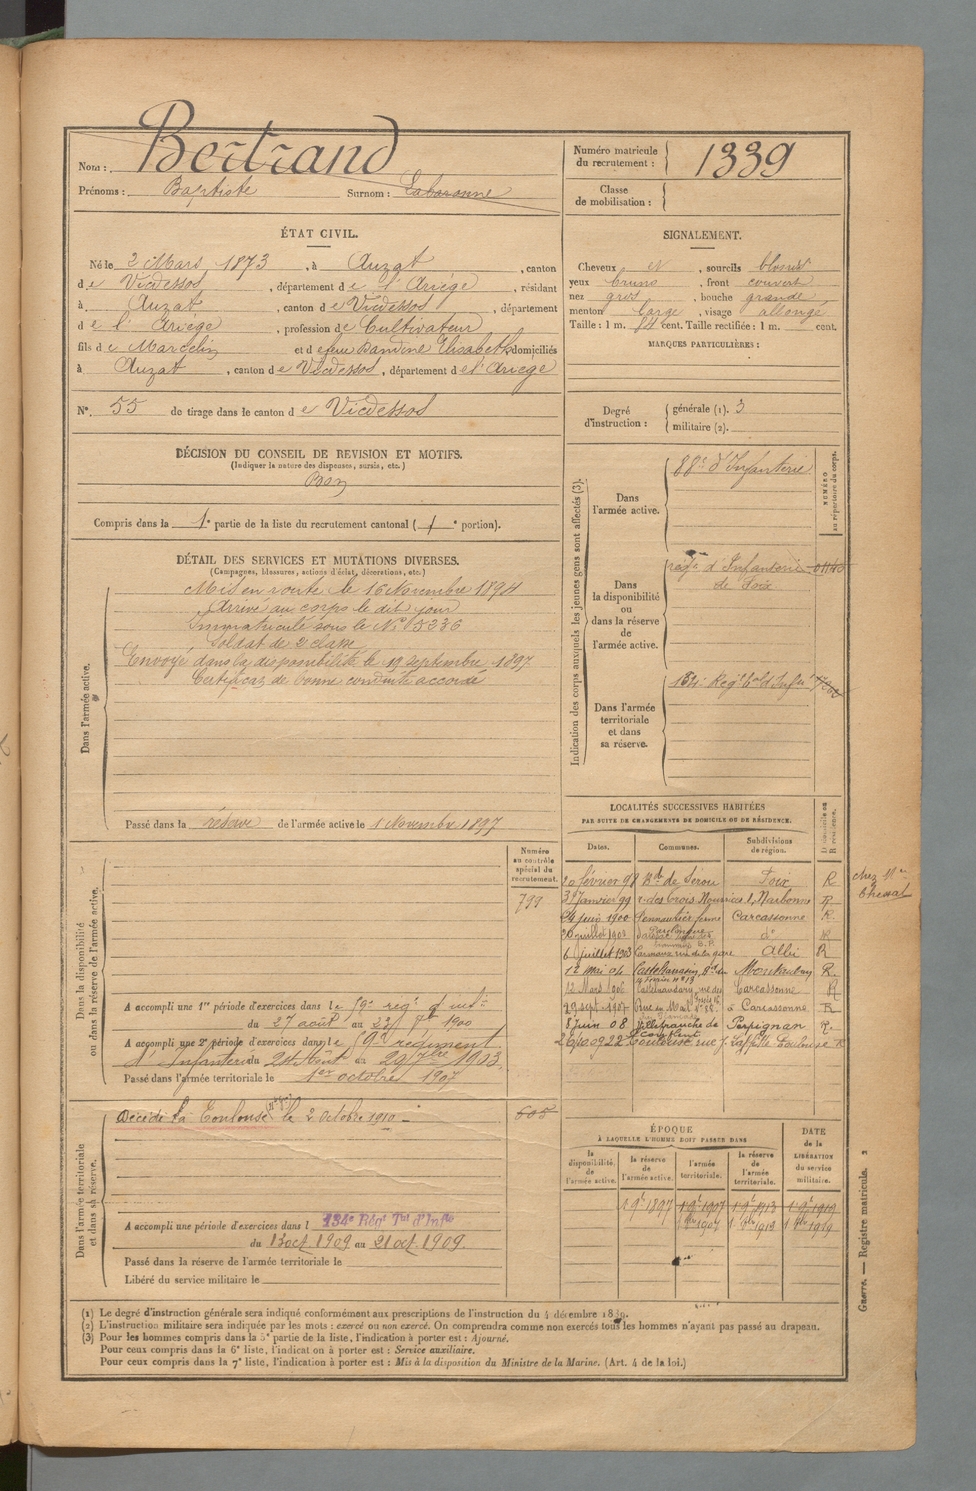 Nom : Bertrand
Prénoms : Baptiste Surnom : Labaronne
Numéro matricule du recrutement : 1339
Classe de mobilisation :
ÉTAT CIVIL.
Né le 2 Mars 1873, à Auzat, canton
de Vicdessos, département de l'Ariège, résidant
à Auzat, canton de Vicdessos, département
de l'Ariège, profession de Cultivateur
fils de Marcelin et de feue Dandine Elisabeth domiciliés
à Auzat, canton de Vicdessos, département de l'Ariège
N° 55 de tirage dans le canton de Vicdessos
SIGNALEMENT.
Cheveux et, sourcils blonds
yeux bruns, front couvert
nez gros, bouche grande
menton large, visage allongé
Taille : 1 m. cent. Taille rectifiée : 1 m. cent.
MARQUES PARTICULIÈRES :
Degré d'instruction : générale (1). 3
militaire (2).
DÉCISION DU CONSEIL DE REVISION ET MOTIFS.
(Indiquer la nature des dispenses, sursis, etc.)
Bon
Compris dans la 1e partie de la liste du recrutement cantonal ( e portion).
DÉTAIL DES SERVICES ET MUTATIONS DIVERSES.
(Campagnes, blessures, actions d'éclat, décorations, etc.)
Dans l'armée active.
Mis en route le 16 Novembre 1894
Arrivé au corps le dit jour
Immatriculé sous le N° 5236
Soldat de 2e classe
Envoyé dans la disponibilité le 19 septembre 1897
Certificat de bonne conduite accordé
Passé dans la réserve de l'armée active le 1 Novembre 1897
Indication des corps auxquels les jeunes gens sont affectés (3).
NUMÉRO au répertoire du corps.
Dans l'armée active. 88e d'Infanterie
Dans la disponibilité ou dans la réserve de l'armée active. régt d'Infanterie
de Foix
Dans l'armée territoriale et dans sa réserve. 134e Régt tal d'Infie
LOCALITÉS SUCCESSIVES HABITÉES
PAR SUITE DE CHANGEMENTS DE DOMICILE OU DE RÉSIDENCE.
D domicile ou R résidence.
Dates. Communes. Subdivisions de région.
20 février 98 Bde de Serou Foix R chez Mr
31 Janvier 99 r. des trois Nourrices 1, Narbonne R
juin 1900 Pennautier ferme Carcassonne R
juillet 1902 do R
6 juillet 1903 Carmaux rue de la gare Albi R
12 Mai 04 Castelsarrasin, Montauban R.
12 Mars 1906 Castelnaudary, rue de Carcassonne R
29 sept 1907 Rue du Mail à Carcassonne R
8 Juin 08 Villefranche de Conflent Perpignan R.
Toulouse rue Toulouse R
Dans la disponibilité ou dans la réserve de l'armée active.
Numéro au contrôle spécial du recrutement.
799
A accompli une 1re période d'exercices dans le 59e régt d'infie
du 27 août au 23 7bre 1900
A accompli une 2e période d'exercices dans le 59e régiment
d'Infanterie du Août au 20 7bre 1903
Passé dans l'armée territoriale le 1er octobre 1907
Dans l'armée territoriale et dans sa réserve.
Décédé à Toulouse le 2 octobre 1910 605
A accompli une période d'exercices dans l 134e Régt Tal d'Infie
du 13 oct 1909 au 21 oct. 1909.
Passé dans la réserve de l'armée territoriale le
Libéré du service militaire le
ÉPOQUE
À LAQUELLE L'HOMME DOIT PASSER DANS
DATE de la LIBÉRATION du service militaire.
la disponibilité de l'armée active. la réserve de l'armée active. l'armée territoriale. la réserve de l'armée territoriale.
1 9b 1897 1 9b 1907 1 9b 1913 1 9b 1919
1 8bre 1907 1 8bre 1913 1 8bre 1919
Guerre. — Registre matricule. 2
(1) Le degré d'instruction générale sera indiqué conformément aux prescriptions de l'instruction du 4 décembre 1889.
(2) L'instruction militaire sera indiquée par les mots : exercé ou non exercé. On comprendra comme non exercés tous les hommes n'ayant pas passé au drapeau.
(3) Pour les hommes compris dans la 5e partie de la liste, l'indication à porter est : Ajourné.
Pour ceux compris dans la 6e liste, l'indication à porter est : Service auxiliaire.
Pour ceux compris dans la 7e liste, l'indication à porter est : Mis à la disposition du Ministre de la Marine. (Art. 4 de la loi.)